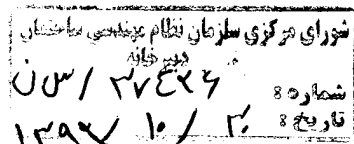 شورای مرکزی سازمان نظام مهندسی ساختمان
دبیرخانه
شماره: ۳۷۴۲۶ / س ن
تاریخ: ۳۰ / ۱۰ / ۱۳۹۷